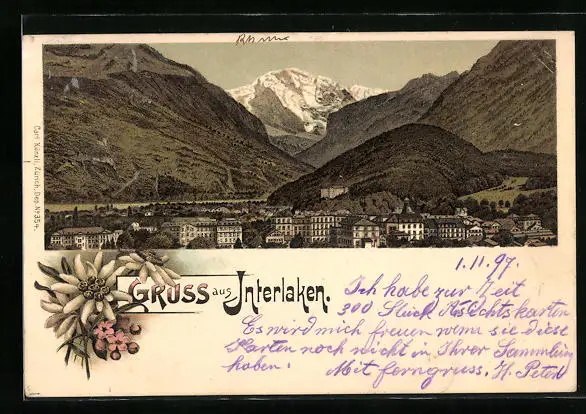 Carl Künzli, Zürich, Dep. No 354.
GRUSS aus Interlaken.
1.11.97.
Ich habe zur Zeit
300 Stück Ansichtskarten
Es wird mich freuen wenn sie diese
Karten noch nicht in Ihrer Sammlung
haben. Mit ferngruss. H. Peter